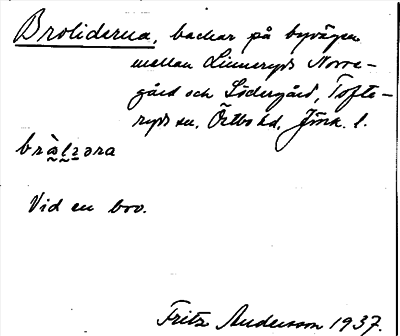 Broliderna, backar på byvägen
mellan Linneryds Norre-
gård och Södergård, Tofte-
ryds sn, Östbo hd, Jönk. l.
bràl̰ɜ̰əra
Vid en bro.
Fritz Andersson 1937.